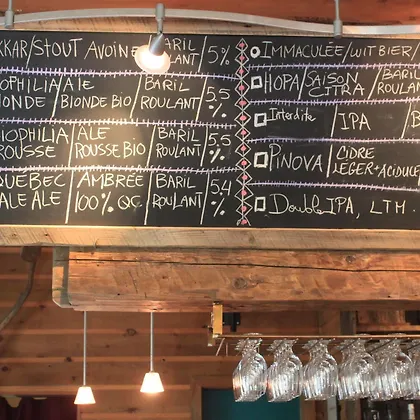 KKAR/STOUT AVOINE BARIL ROULANT 5%
OPHILIA/ALE BARIL
ONDE/BLONDE BIO/ROULANT 5,5%
IOPHILIA/ALE BARIL
ROUSSE/ROUSSE BIO/ROULANT 5,5%
QUEBEC/AMBRÉE/BARIL
ALE ALE/100% QC/ROULANT 5,4%
IMMACULÉE/WITBIER/
HOPA/SAISON CITRA/BARIL ROULAN
Interdite/IPA/B
PINOVA/CIDRE
LEGER+ACIDULÉ
Double IPA, LTM.